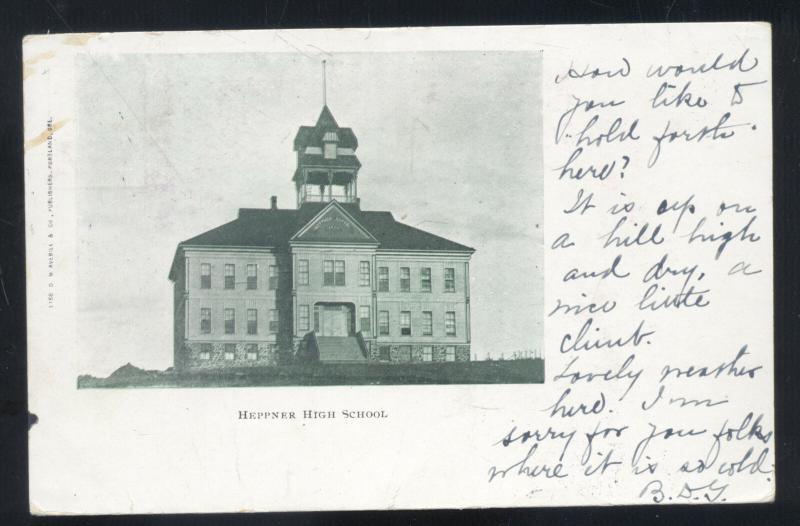 1156 D. M. AVERILL & CO., PUBLISHERS, PORTLAND, ORE.
HEPPNER HIGH SCHOOL
How would
you like to
"hold forth"
here?
It is up on
a hill high
and dry, a
nice little
climb.
Lovely weather
here. I'm
sorry for you folks
where it is so cold.
B.D.G.